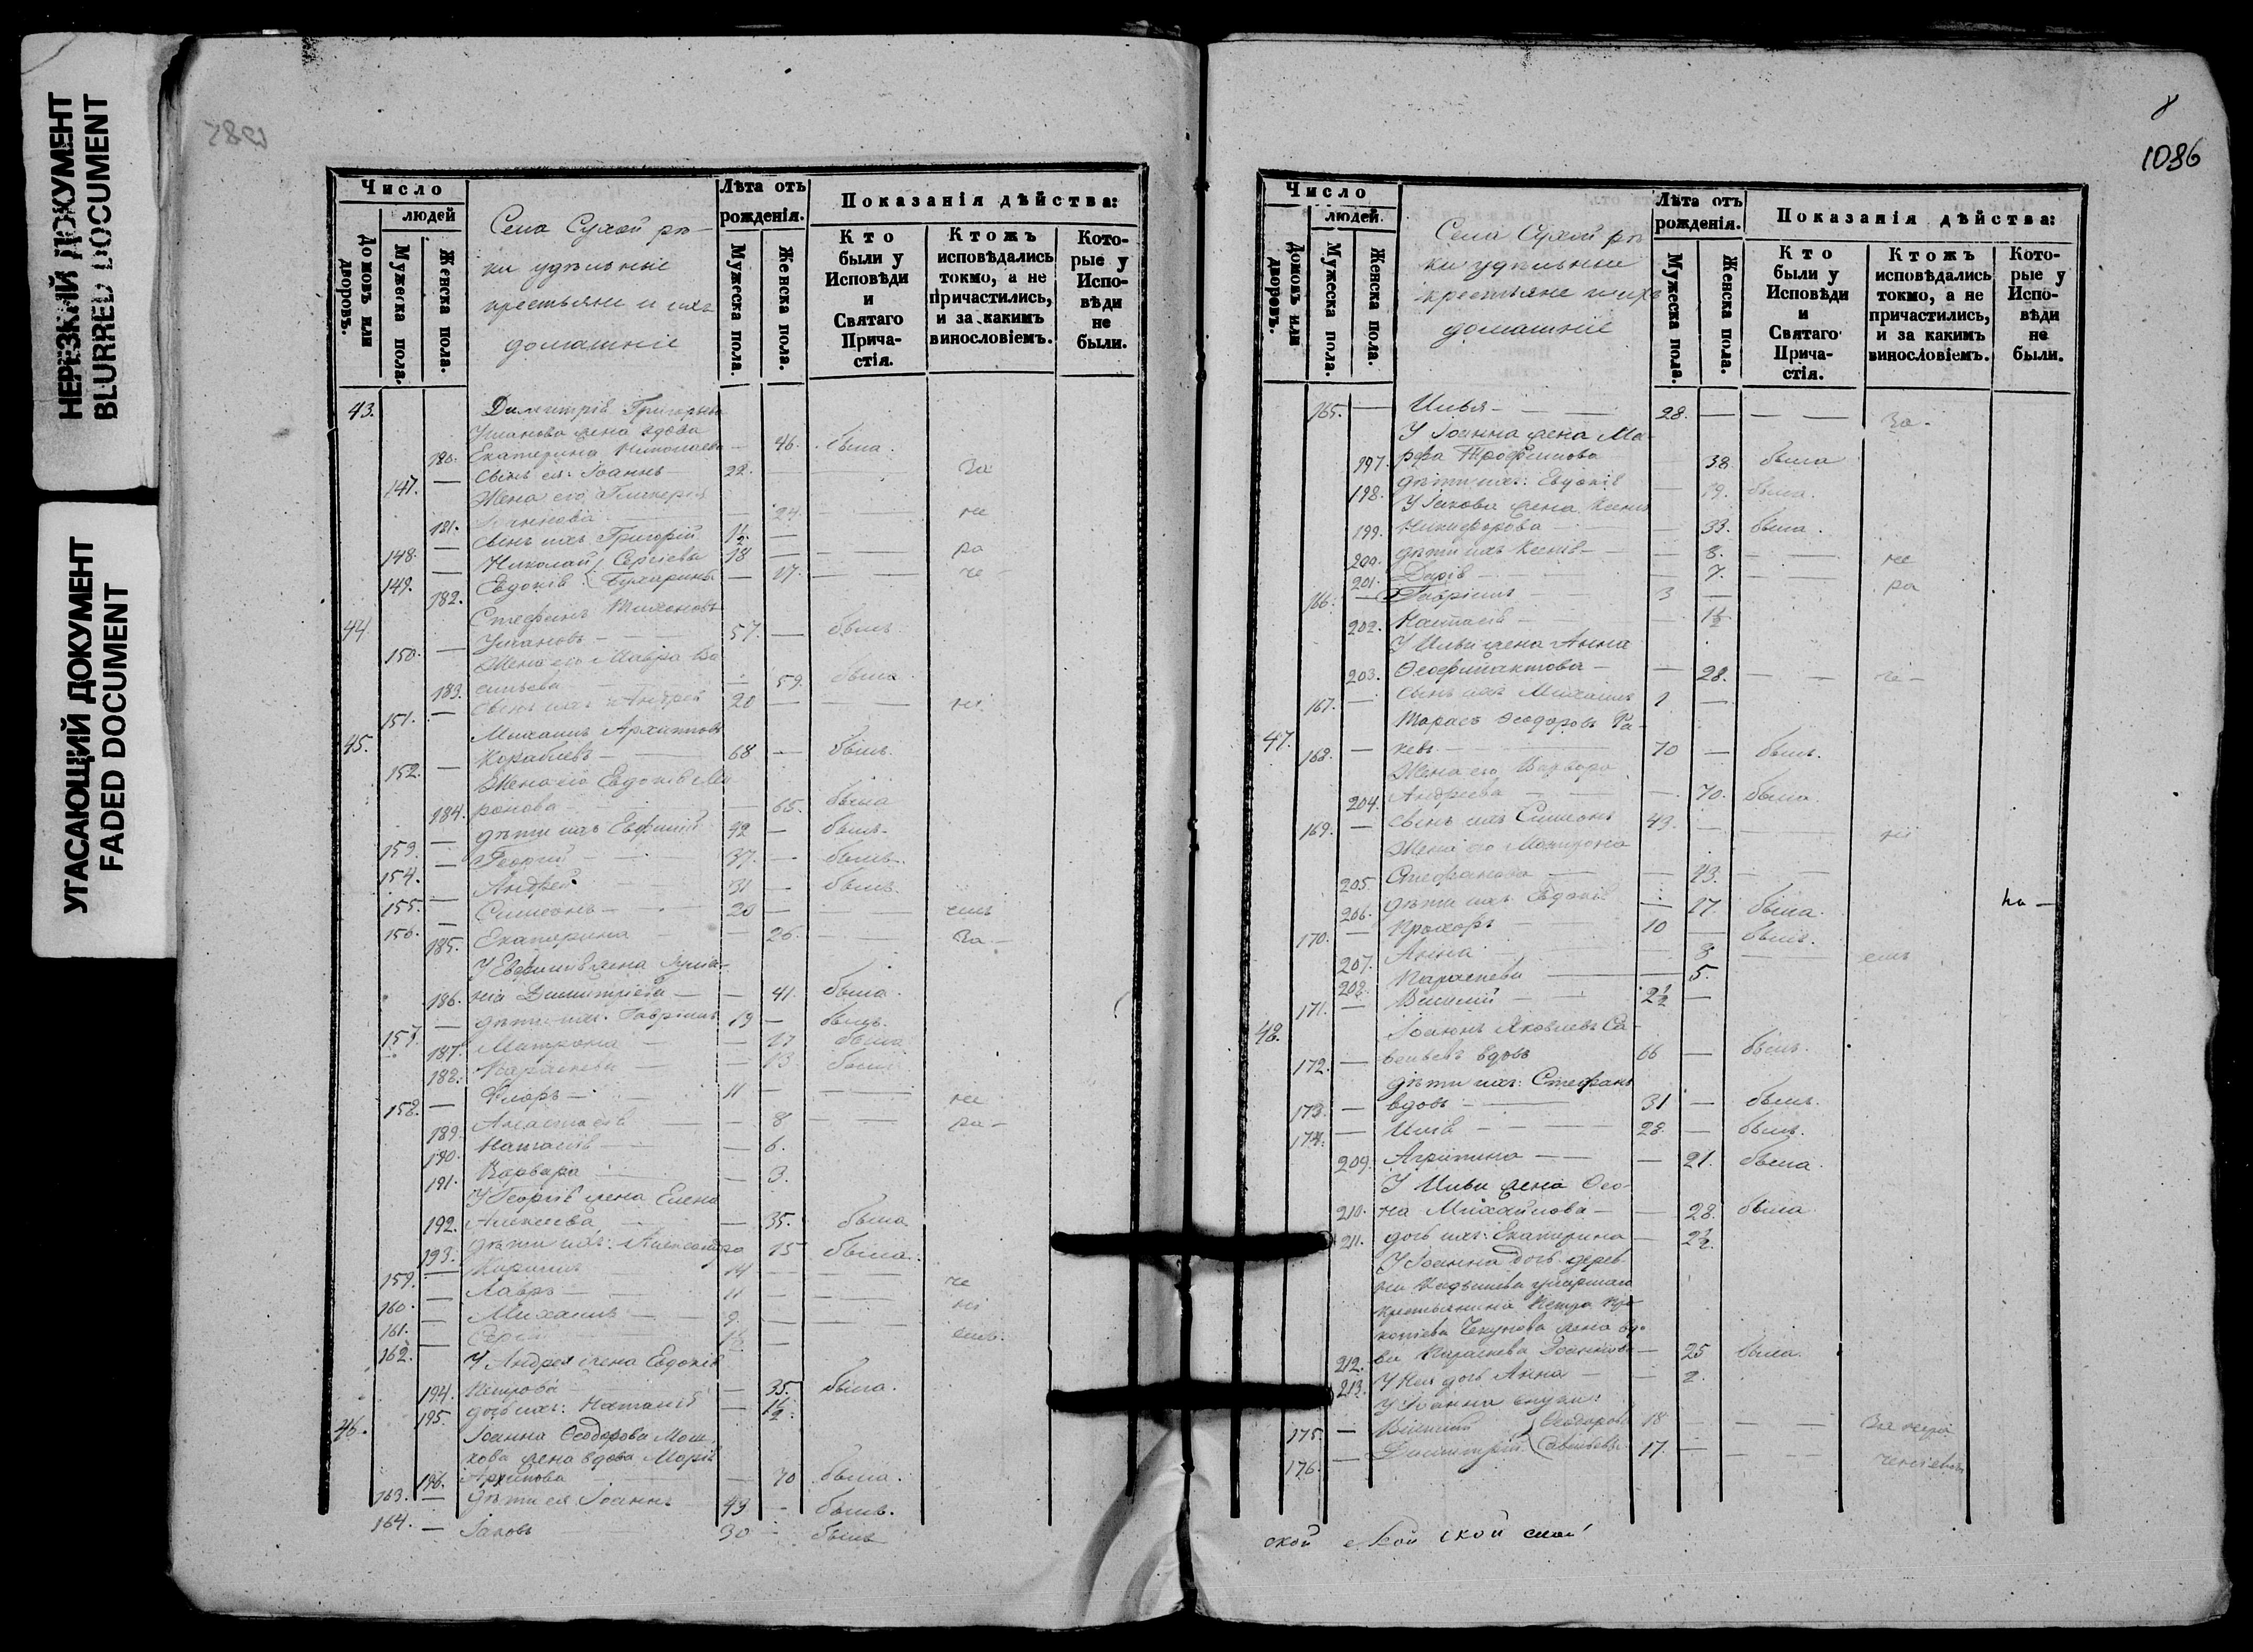 НЕРЕЗКИЙ ДОКУМЕНТ
BLURRED DOCUMENT
УГАСАЮЩИЙ ДОКУМЕНТ
FADED DOCUMENT
Число
людей
Домовъ или дворовъ.
Мужеска пола.
Женска пола.
Села Сухой рѣ-
ки удѣльные
крестьяне и ихъ
домашніе
Лѣта отъ рожденія.
Мужеска пола.
Женска пола.
Показанія дѣйства:
Кто были у Исповѣди и Святаго Прича-стія.
Ктожъ исповѣдались токмо, а не причастились, и за какимъ винословіемъ.
Кото-рые у Испо-вѣди не были.
43. Димитрія Григорьева
Ушанова жена вдова
180. Екатерина Николаева — 46. была.
147. — Сынъ ея: Іоаннъ 22. За
Жена его Гликерія
181. Іоаннова — 24. не
148. — Сынъ ихъ Григорій 1½ —
149. — Николай Сергіевы 18 — ра
182. Евдокія — 17. че
44. Стефанъ Тихоновъ
150. — Ушановъ — 57. — былъ
Жена его Мавра Ва
183. сильева — 59. была.
151. — Сынъ ихъ Андрей 20 — ні
45. Михаилъ Архиповъ
152. — Кораблевъ — 68 — былъ.
Жена его Евдокія Ми
184. ронова — 65. была
153. — дѣти ихъ Евфимій 42 — былъ.
154. — Георгій — 37. — былъ.
155. — Андрей 31 — былъ.
156. — Симеонъ — 20 — емъ
185. Екатерина — 26. За —
У Евфимія жена
186. Димитріева — 41. была.
157. — дѣти ихъ: Гавріилъ 19 — былъ.
187. Матрона — 17 была
188. Параскева — 13. была
158. — Флоръ — 11 — не
189. Анастасія — 8 ра —
190. Наталія — 6.
191. Варвара — 3.
У Георгія жена Елена
192. Алексѣева — 35. была
193. дѣти ихъ: Александра 15 была.
159. — Кириллъ 14 — че
160. — Лавръ — 11 — ні
161. — Михаилъ — 9. — емъ.
162. — 
У Андрея жена Евдокія
194. Петрова — 35. была.
195. дочь ихъ: Наталія — 1½
46. Іоанна Ѳеодорова Мош
кова жена вдова Марія
196. Архипова — 70 была.
163. — Дѣти ея Іоаннъ 43 — былъ.
164. — Іаковъ 30 — былъ
8
1086
Число
людей.
Домовъ или дворовъ.
Мужеска пола.
Женска пола.
Села Сухой рѣ
ки удѣльные
крестьяне и ихъ
домашніе
Лѣта отъ рожденія.
Мужеска пола.
Женска пола.
Показанія дѣйства:
Кто были у Исповѣди и Святаго Прича-стія.
Ктожъ исповѣдались токмо, а не причастились, и за какимъ винословіемъ.
Кото-рые у Испо-вѣди не были.
165. — Илья — 28. — — За.
У Іоанна жена Ма
197. рфа Трофимова 38. была
198. дѣти ихъ: Евдокія — 19. была.
У Іакова жена Ксенія
199. Никифорова — 33. была.
200. дѣти ихъ Ксенія — 8. — не
201. Дарія — 7. — ра
166. — Гавріилъ — 3 —
202. Наталія — 1½
У Ильи жена Анна
203. Ѳеофилактова — 28. — че —
167. — Сынъ ихъ Михаилъ 1 —
47. Тарасъ Ѳеодоровъ Ра-
168. — кевъ — 70 — былъ.
Жена его Варвара
204. Андреева — 70. была.
169. — Сынъ ихъ Симеонъ 43. — ні
Жена его Матрона
205. Стефанова — 43. —
206. дѣти ихъ: Евдокія — 17. была. на —
170. — Прохоръ — 10 — былъ.
207. Анна — 8 емъ
208. Параскева — 5.
171. — Василій — 2½ —
48. Іоаннъ Яковлевъ Са-
172. — вельевъ вдовъ 66 — былъ.
дѣти ихъ: Стефанъ
173. — вдовъ — 31 — былъ.
174. — Илія — 28. — былъ.
209. Агрипина — 21. была.
У Ильи жена Ѳео
210. на Михайлова — 28. была
211. дочь ихъ: Екатерина — 2½
У Іоанна дочь дерев
ни Кадышева умершаго
крестьянина Петра Про
копіева Чекунова жена вдо
212. ва Параскева Іоаннова — 25 была.
213. У ней дочь Анна — 2.
У Іоанна внуки:
175. — Василій Ѳеодоровы 18 — — За нера
176. — Димитрій Савельевы. 17. — — ченіемъ
ской ской